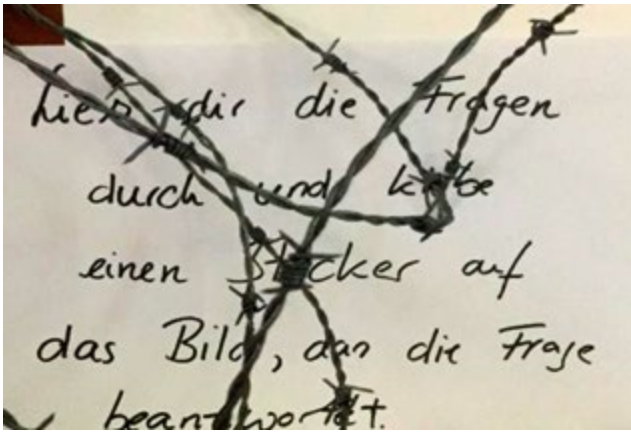 Lies dir die Fragen
durch und klebe
einen Sticker auf
das Bild, das die Frage
beantwortet.